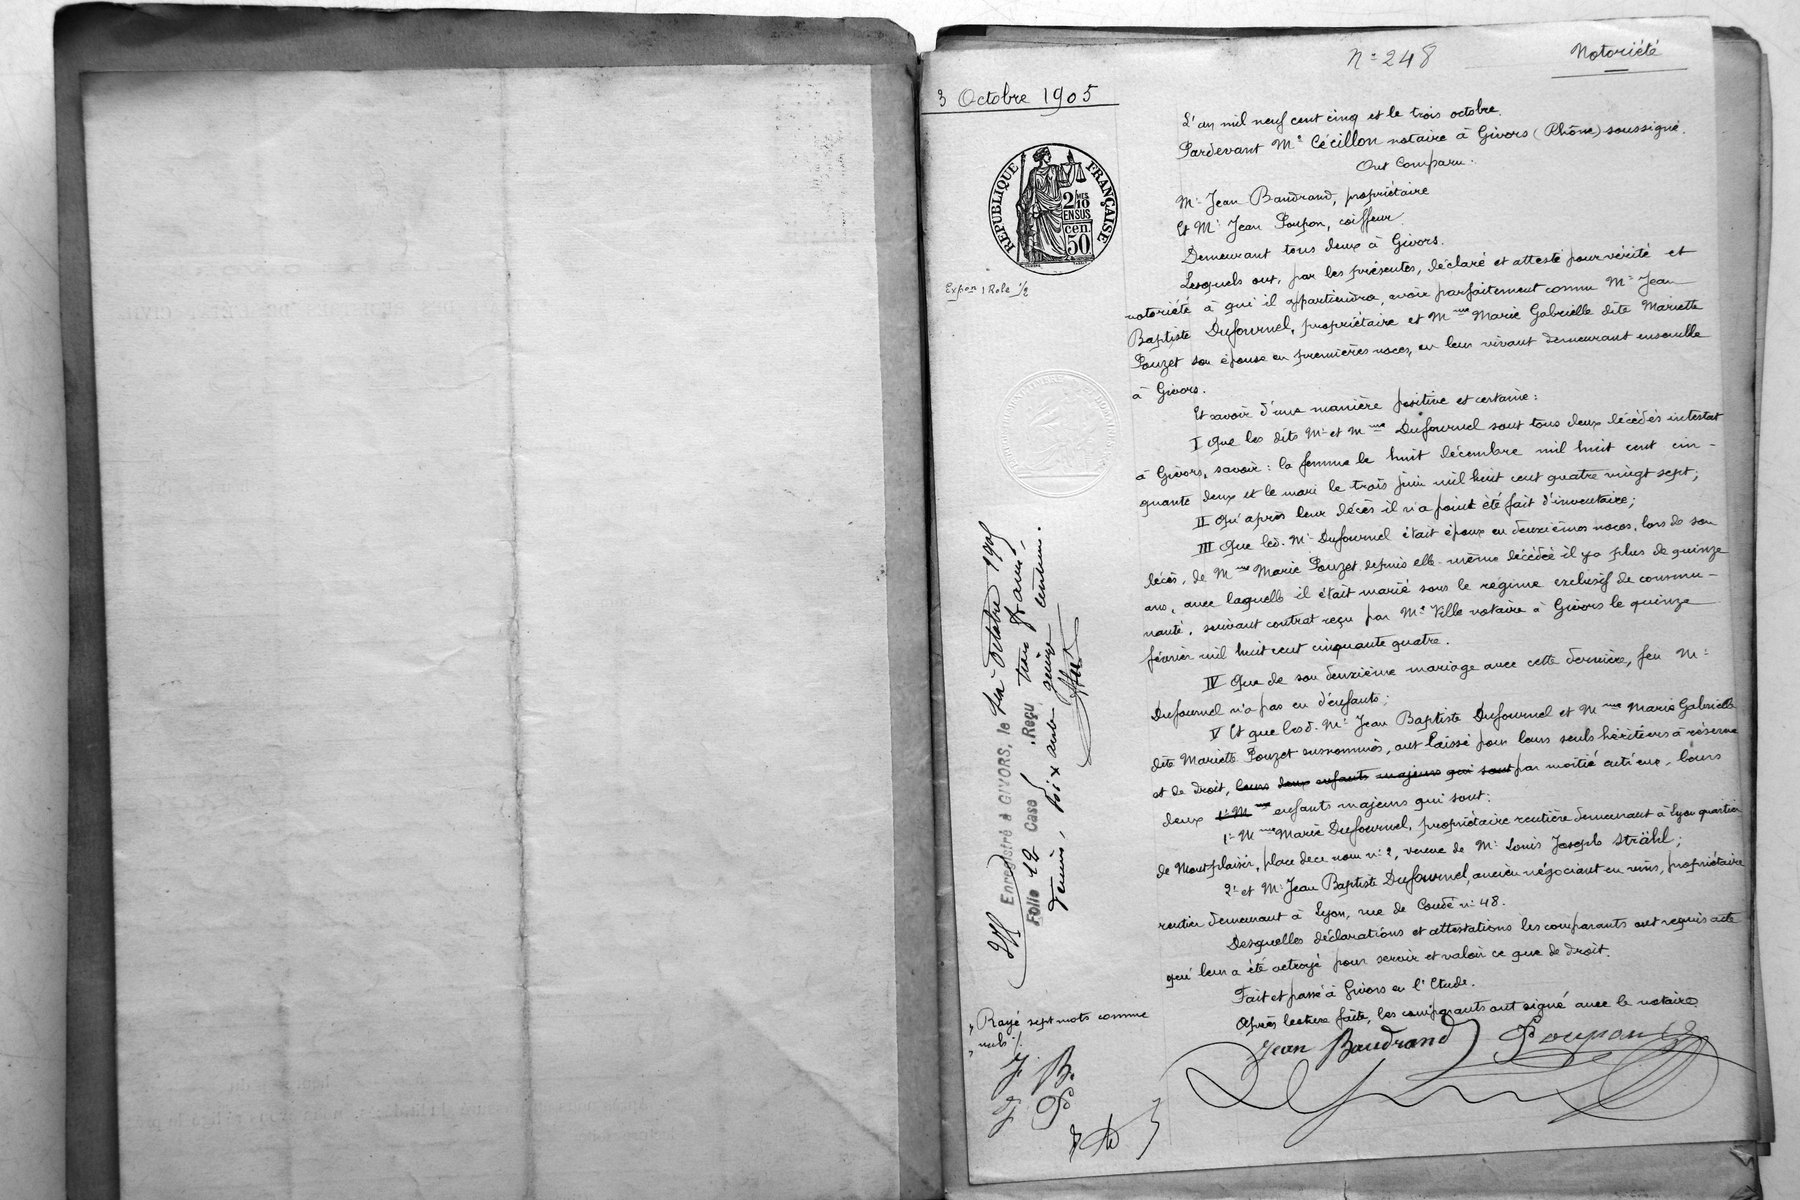 N° 248
Notoriété
3 Octobre 1905
RÉPUBLIQUE FRANÇAISE
2/10
EN SUS
cen.
50
Expon 1 Role 1/2
L'an mil neuf cent cinq et le trois octobre.
Pardevant Me Cécillon notaire à Givors (Rhône) soussigné.
Ont Comparu.
Mr Jean Baudrand, propriétaire
Et Mr Jean Poupon, coiffeur
Demeurant tous deux à Givors.
Lesquels ont, par les présentes, déclaré et attesté pour vérité et
notoriété à qui il appartiendra, avoir parfaitement connu Mr Jean
Baptiste Dufournel, propriétaire et Mme Marie Gabrielle dite Mariette
Pouzet son épouse en premières noces, en leur vivant demeurant ensemble
à Givors.
Et savoir d'une manière positive et certaine:
I Que les dits Mr et Mme Dufournel sont tous deux décédés intestat
à Givors, savoir: la femme le huit décembre mil huit cent cin-
quante deux et le mari le trois juin mil huit cent quatre vingt sept;
II Qu'après leur décès il n'a point été fait d'inventaire;
III Que led. Mr Dufournel était époux en deuxièmes noces, lors de son
décès, de Mme Marie Pouzet depuis elle-même décédée il y a plus de quinze
ans, avec laquelle il était marié sous le régime exclusif de commu-
nauté, suivant contrat reçu par Me Ville notaire à Givors le quinze
février mil huit cent cinquante quatre.
IV Que de son deuxième mariage avec cette dernière, feu Mr
Dufournel n'a pas eu d'enfants;
V Et que lesd. Mr Jean Baptiste Dufournel et Mme Marie Gabrielle
dite Mariette Pouzet susnommés, ont laissé pour leurs seuls héritiers à réserve
et de droit, leurs deux enfants majeurs qui sont par moitié entr'eux, leurs
deux 1° Mme enfants majeurs qui sont:
1° Mme Marie Dufournel, propriétaire rentière demeurant à Lyon quartier
de Montplaisir, place de ce nom n° 2, veuve de Mr Louis Joseph Strähl;
2° et Mr Jean Baptiste Dufournel, ancien négociant en vins, propriétaire
rentier demeurant à Lyon, rue de Condé n° 48.
Desquelles déclarations et attestations les comparants ont requis acte
qui leur a été octroyé pour servir et valoir ce que de droit.
Fait et passé à Givors en l'Etude.
Après lecture faite, les comparants ont signé avec le notaire
Jean Baudrand Poupon
Enregistré à GIVORS, le six Octobre 1905
Folio 12 Case Reçu trois francs,
Décimes, soixante quinze centimes.
Rayé sept mots comme
nuls
J B.
J P